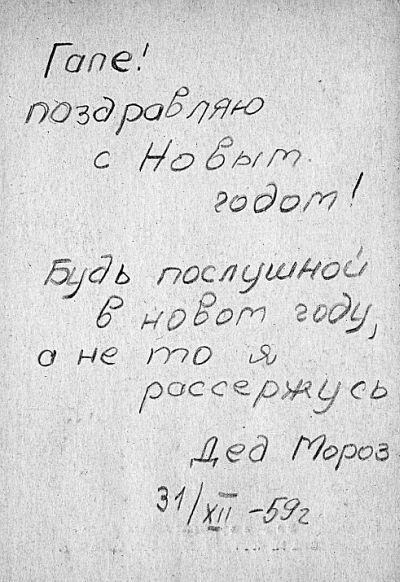 Гале!
поздравляю
с Новым
годом!
Будь послушной
в новом году,
а не то я
рассержусь
Дед Мороз
31/XII -59г